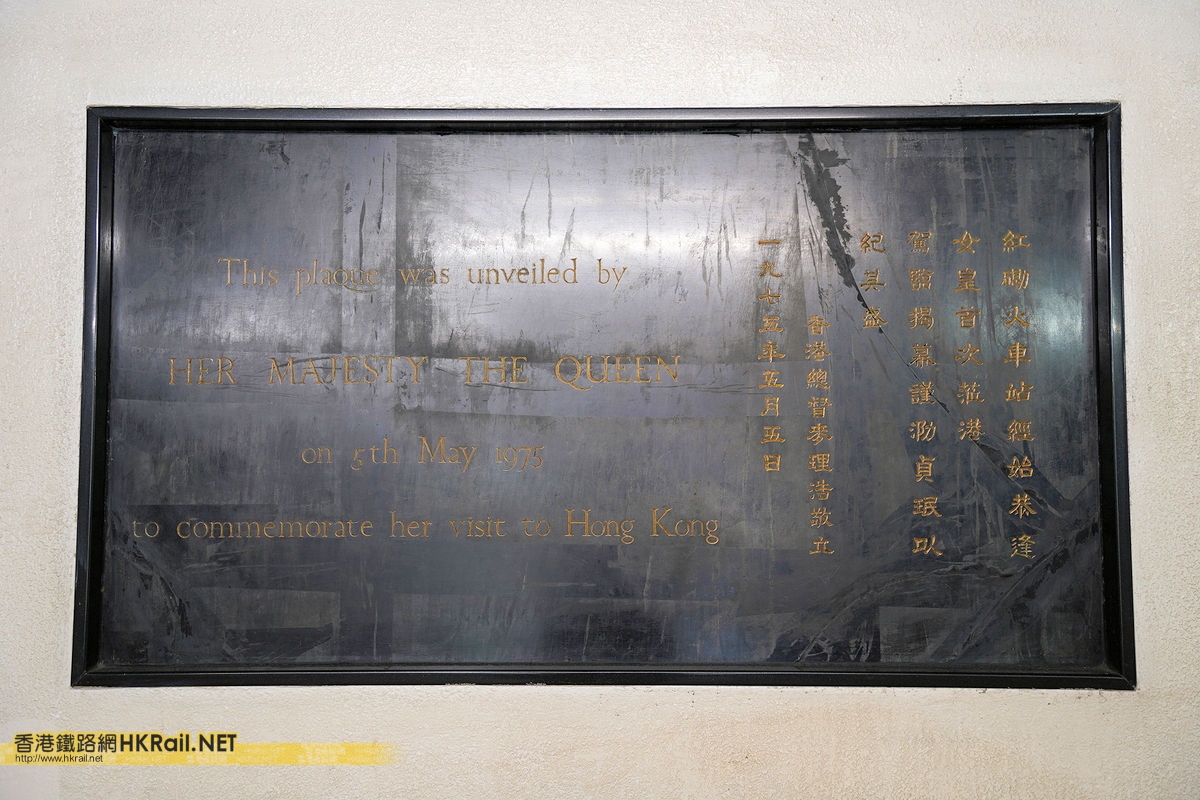 This plaque was unveiled by
HER MAJESTY THE QUEEN
on 5th May 1975
to commemorate her visit to Hong Kong
紅磡火車站經始恭逢
女皇首次蒞港
駕臨揭幕謹泐貞珉以
紀其盛
香港總督麥理浩敬立
一九七五年五月五日
香港鐵路網HKRail.NET
http://www.hkrail.net